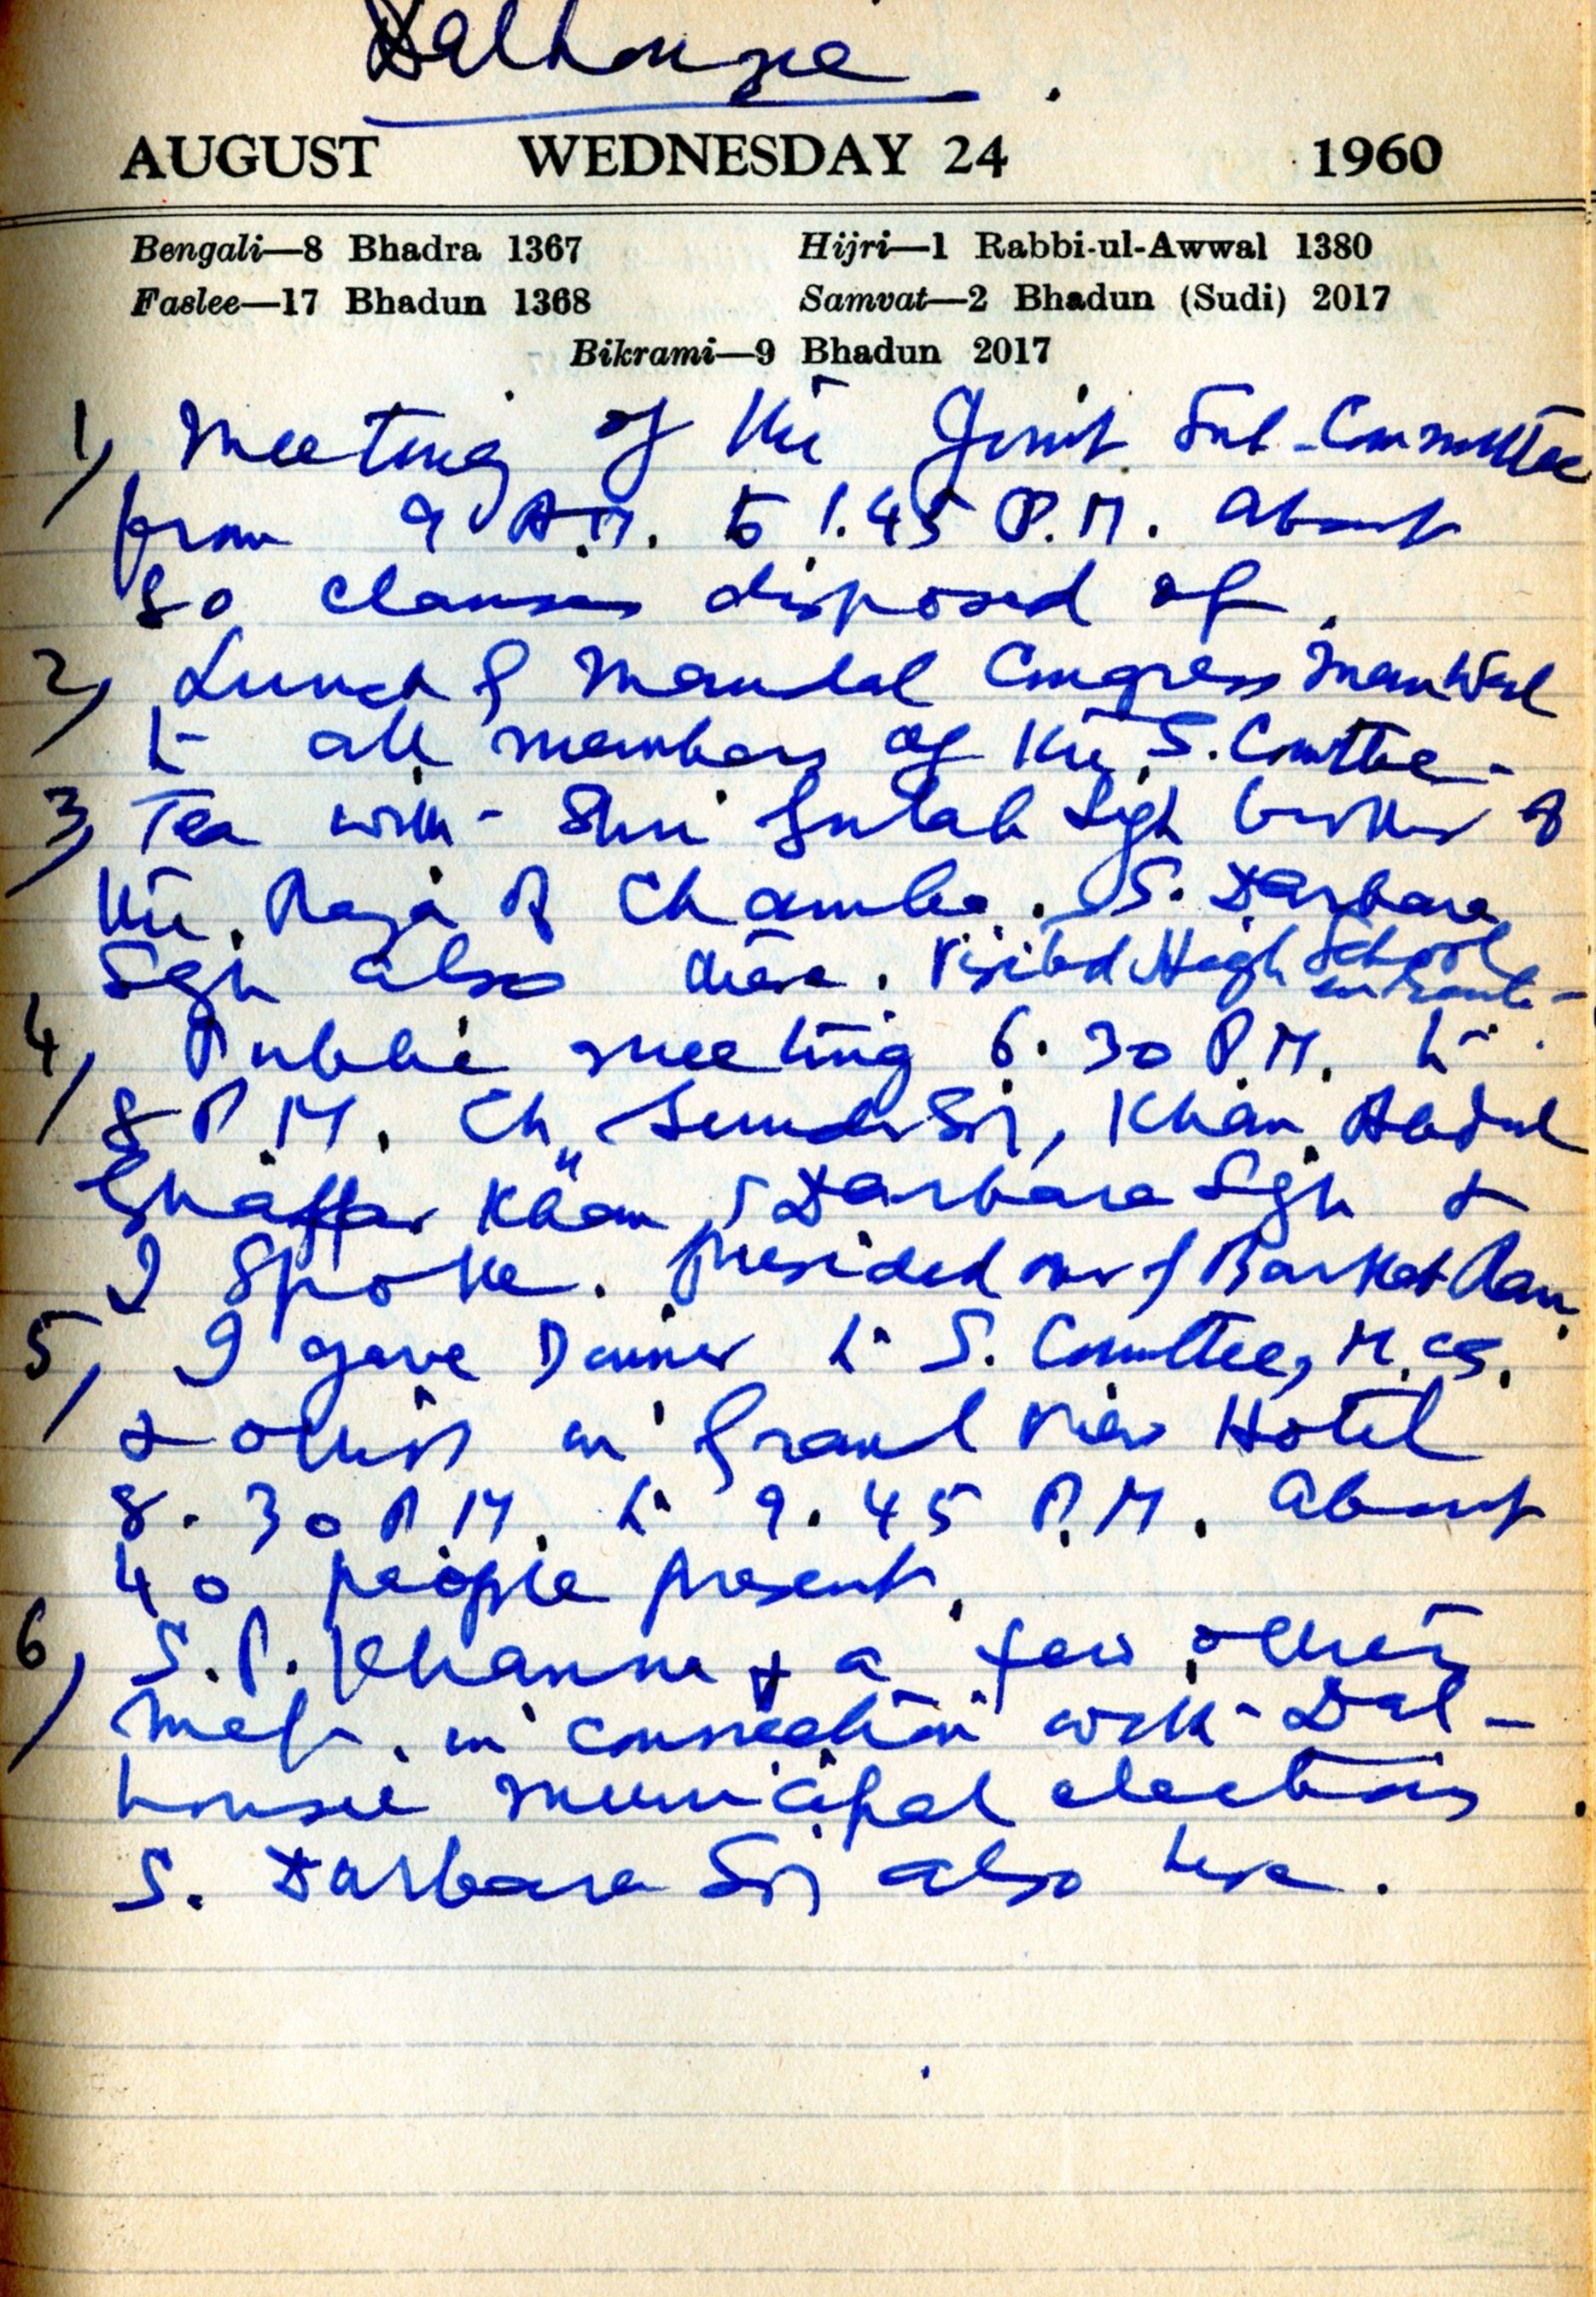 Dalhousie.
AUGUST WEDNESDAY 24 1960
Bengali—8 Bhadra 1367 Hijri—1 Rabbi-ul-Awwal 1380
Faslee—17 Bhadun 1368 Samvat—2 Bhadun (Sudi) 2017
Bikrami—9 Bhadun 2017
1, Meeting of the Joint Sub-Committee
from 9 A.M. to 1.45 P.M. About
80 clauses disposed of.
2, Lunch of Mandal Congress
to all members of the S. Comttee-
3, Tea with Shri Gulab Sgh brother of
the Raja of Chamba. S. Darbara
Sgh also there. Visited High School
en route-
4, Public meeting 6.30 P.M. to
8 P.M. Ch Sunder Sn, Khan Abdul
Ghaffar Khan, S Darbara Sgh &
I spoke. presided over by Barkat Ram.
5, I gave Dinner to S. Comttee,
& others in Grand View Hotel
8.30 P.M. to 9.45 P.M. About
40 people present.
6, S.P. Khanna & a few others
met in connection with Dal-
housie municipal elections
S. Darbara Sn also here.